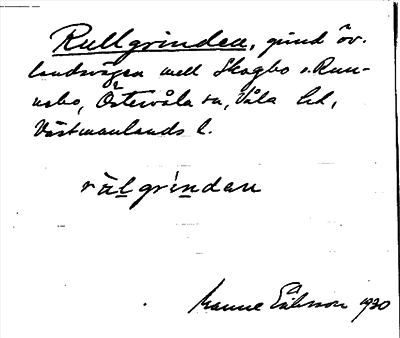 Rullgrinden, grind öv.
landsvägen mell Skogbo o. Run-
nebo, Östervåla sn, Våla hd,
Västmanlands l.
rälgrindan
Manne Eriksson 1930